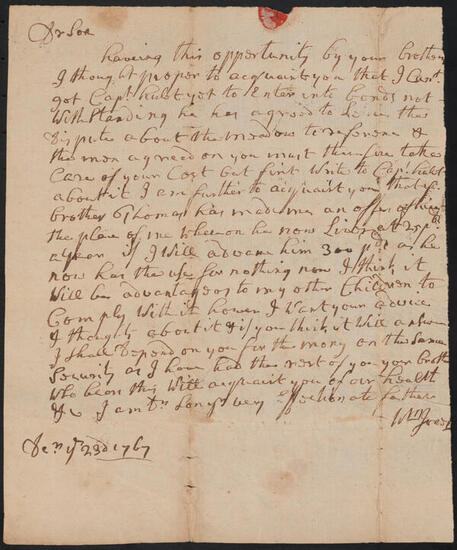 Dr Son
having this opportunity by your brother
I thought proper to acquaint you that I Cant
get Capt yet to Enter into bonds not
With Standing he has agreed to the
Dispute about the meadow to &
the men agreed on you must therefore take
Care of your Cost but first Write to Capt
about it I am further to acquaint you that yr
brother Thomas has made me an offer of
the place of me Whereon he now Lives at 25 pd
a year if I Will advance him 300 pds as he
now has the use for nothing now I think it
Will be advantageos to my other Children to
Comply With it hower I Want your advice
& thoughts about it & if you think it Will answer
I shall Depend on you for the mony on the Same
Security as I have had the rest of you your broth
who bears this Will acquaint you of our health
&c I am Dr Son yr very affectionate father
Wm
23d 1767